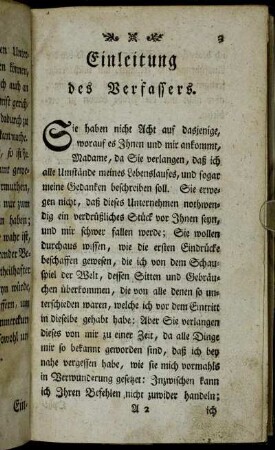 3
Einleitung
des Verfassers.
Sie haben nicht Acht auf dasjenige,
worauf es Ihnen und mir ankommt,
Madame, da Sie verlangen, daß ich
alle Umstände meines Lebenslaufes, und sogar
meine Gedanken beschreiben soll. Sie erwe-
gen nicht, daß dieses Unternehmen nothwen-
dig ein verdrüßliches Stück vor Ihnen seyn,
und mir schwer fallen werde; Sie wollen
durchaus wissen, wie die ersten Eindrücke
beschaffen gewesen, die ich von dem Schau-
spiel der Welt, dessen Sitten und Gebräu-
chen überkommen, die von alle denen so un-
terschieden waren, welche ich vor dem Eintritt
in dieselbe gehabt habe: Aber Sie verlangen
dieses von mir zu einer Zeit, da alle Dinge
mir so bekannt geworden sind, daß ich bey
nahe vergessen habe, wie sie mich vormahls
in Verwunderung gesetzet: Inzwischen kann
ich Ihren Befehlen nicht zuwider handeln;
A 2 ich